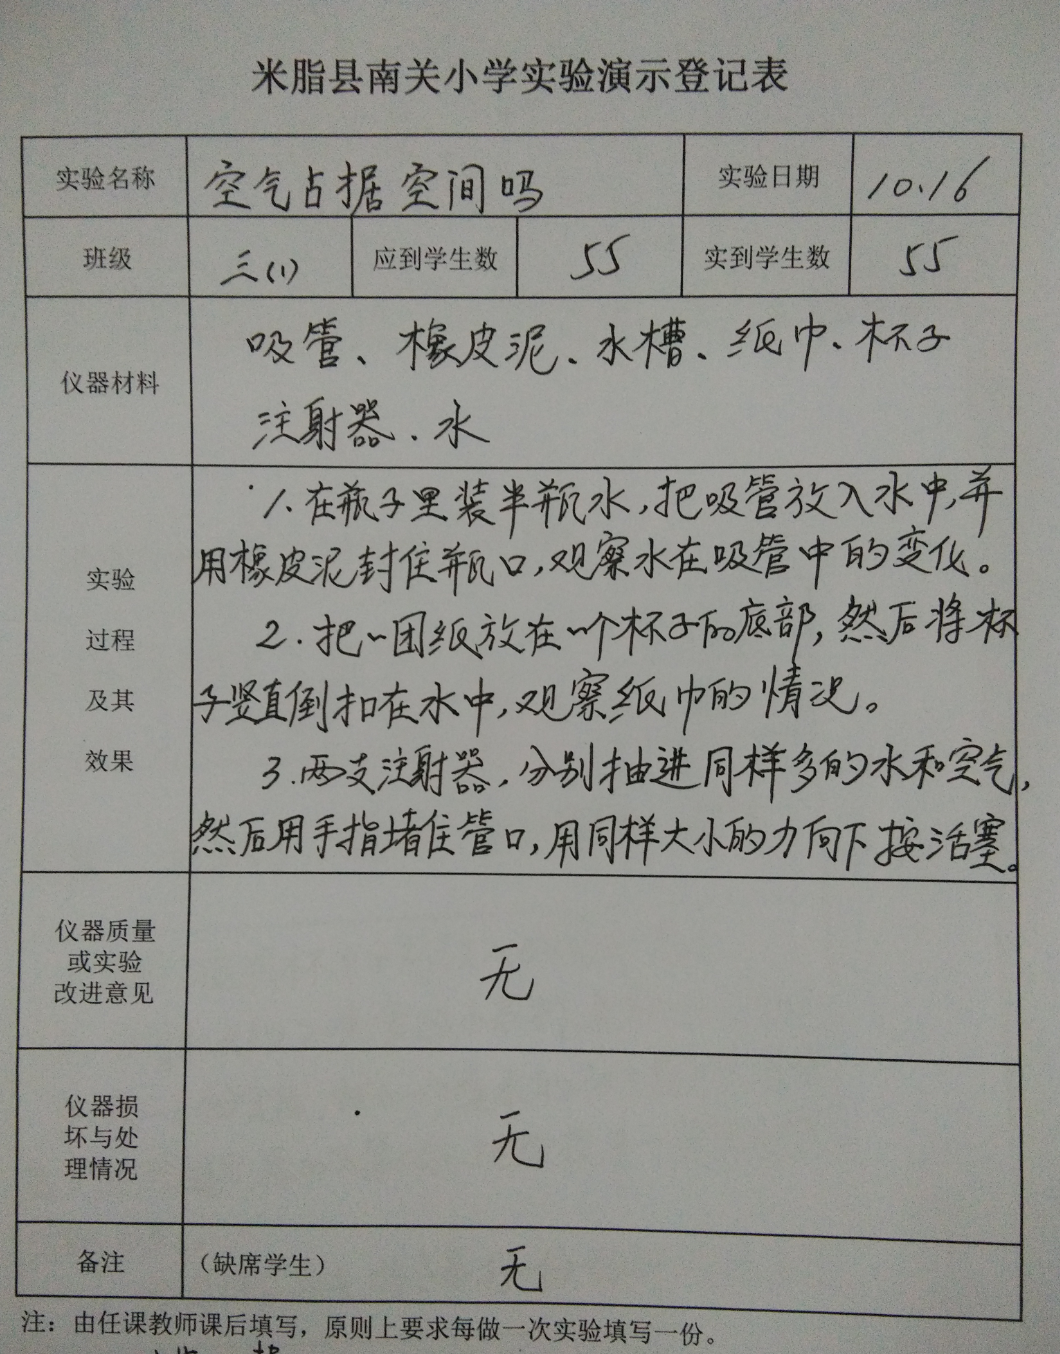 米脂县南关小学实验演示登记表
实验名称 空气占据空间吗 实验日期 10.16
班级 三(1) 应到学生数 55 实到学生数 55
吸管、橡皮泥、水槽、纸巾、杯子
仪器材料
注射器.水
1.在瓶子里装半瓶水,把吸管放入水中,并
用橡皮泥封住瓶口,观察水在吸管中的变化。
实验
2.把一团纸放在一个杯子的底部,然后将杯
过程
子竖直倒扣在水中,观察纸巾的情况。
及其
3.两支注射器,分别抽进同样多的水和空气,
效果
然后用手指堵住管口,用同样大小的力向下按活塞。
仪器质量
或实验
改进意见
无
仪器损
坏与处
理情况
无
备注 (缺席学生) 无
注：由任课教师课后填写，原则上要求每做一次实验填写一份。